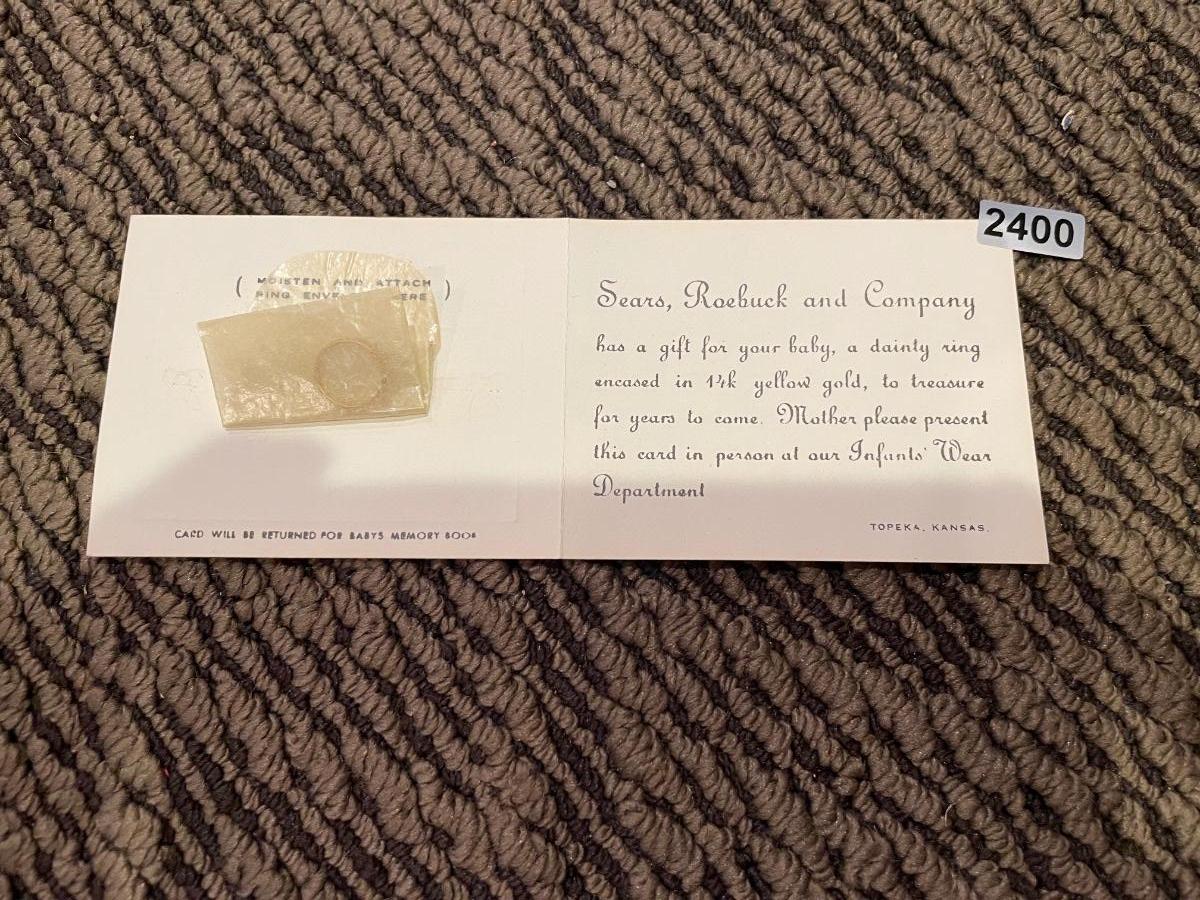 ( MOISTEN AND ATTACH
RING ENVE ERE )
CARD WILL BE RETURNED FOR BABYS MEMORY BOOK
2400
Sears, Roebuck and Company
has a gift for your baby, a dainty ring
encased in 14k yellow gold, to treasure
for years to come. Mother please present
this card in person at our Infants' Wear
Department
TOPEKA, KANSAS.